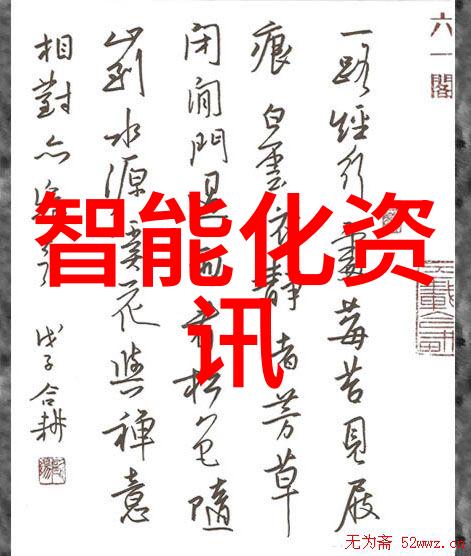 六一閣
一路經行處莓苔見屐
痕白雲依静渚芳草
閉閒門
看松色隨
山到水源溪花與禅意
相對亦
戊子合耕
智能化资
讯
无为斋 52wwz.c